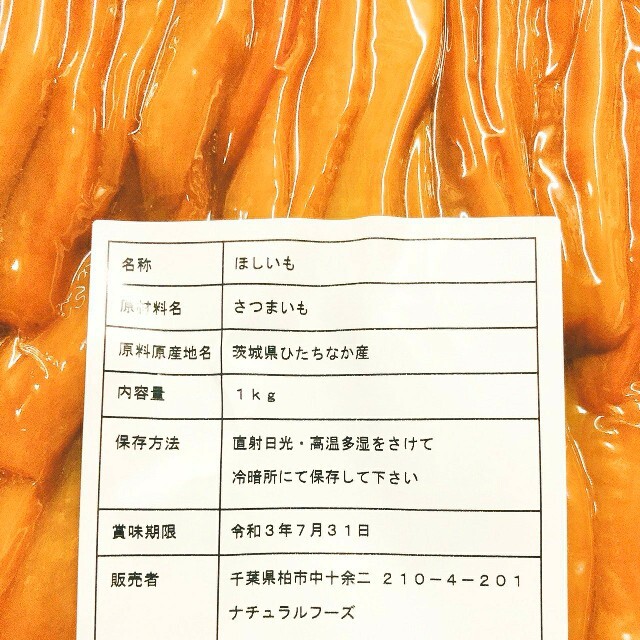 名称 ほしいも
原材料名 さつまいも
原料原産地名 茨城県ひたちなか産
内容量 １ｋｇ
保存方法 直射日光・高温多湿をさけて
冷暗所にて保存して下さい
賞味期限 令和３年７月３１日
販売者 千葉県柏市中十余二 ２１０－４－２０１
ナチュラルフーズ